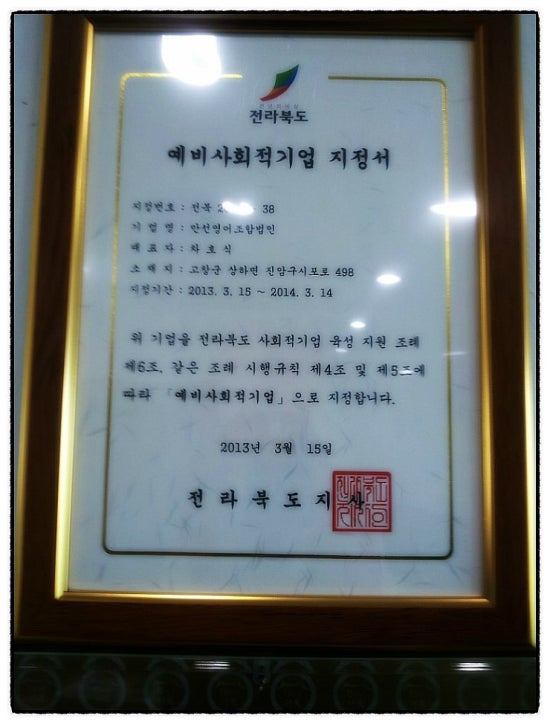 전라북도
예비사회적기업 지정서
지정번호 : 전북 38
기 업 명 : 만선영어조합법인
대 표 자 : 차 호 식
소 재 지 : 고창군 상하면 진암구시포로 498
지정기간 : 2013. 3. 15 ~ 2014. 3. 14
위 기업을 전라북도 사회적기업 육성 지원 조례
제6조, 같은 조례 시행규칙 제4조 및 제5조에
따라 「예비사회적기업」으로 지정합니다.
2013년 3월 15일
전 라 북 도 지 사